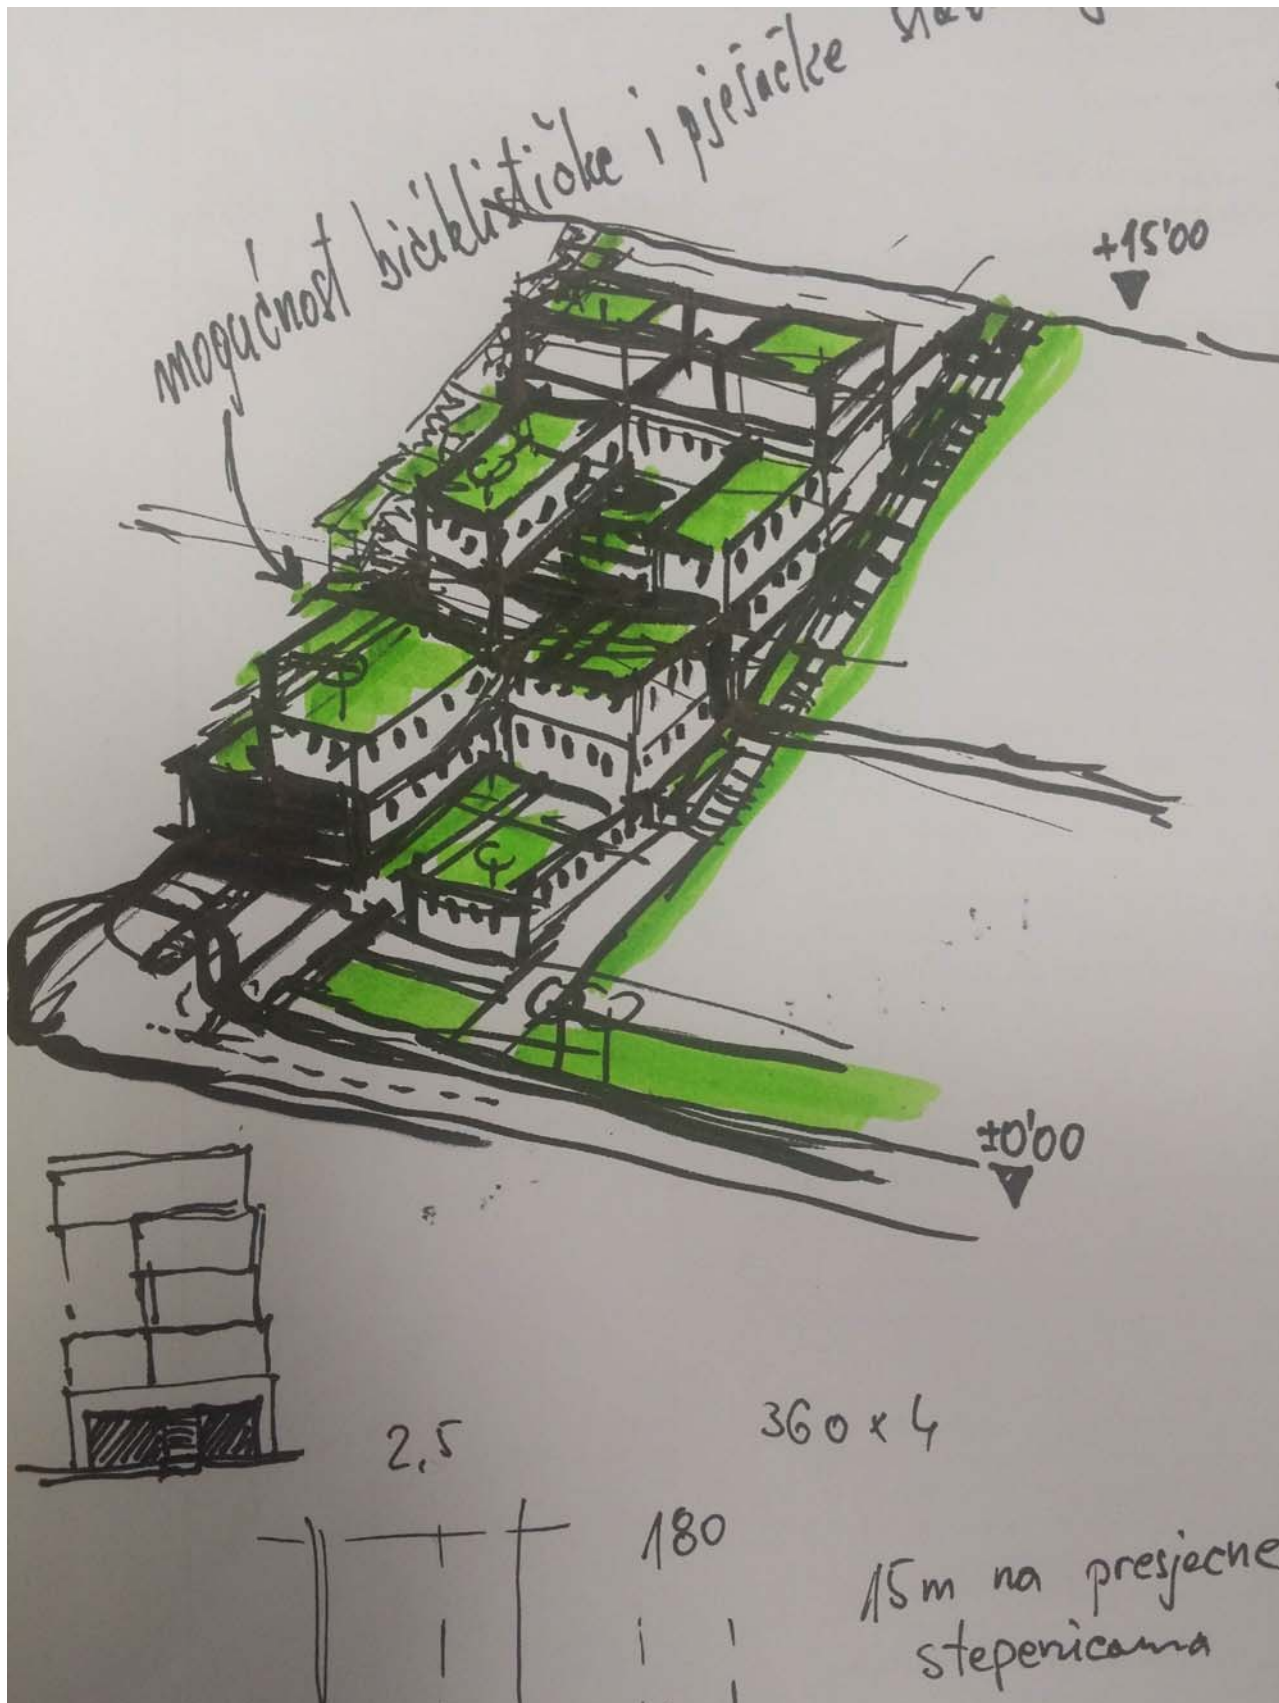 mogućnost biciklističke i pješačke
+15'00
±0'00
2,5
360 x 4
180
15m na presjecne
stepenicama